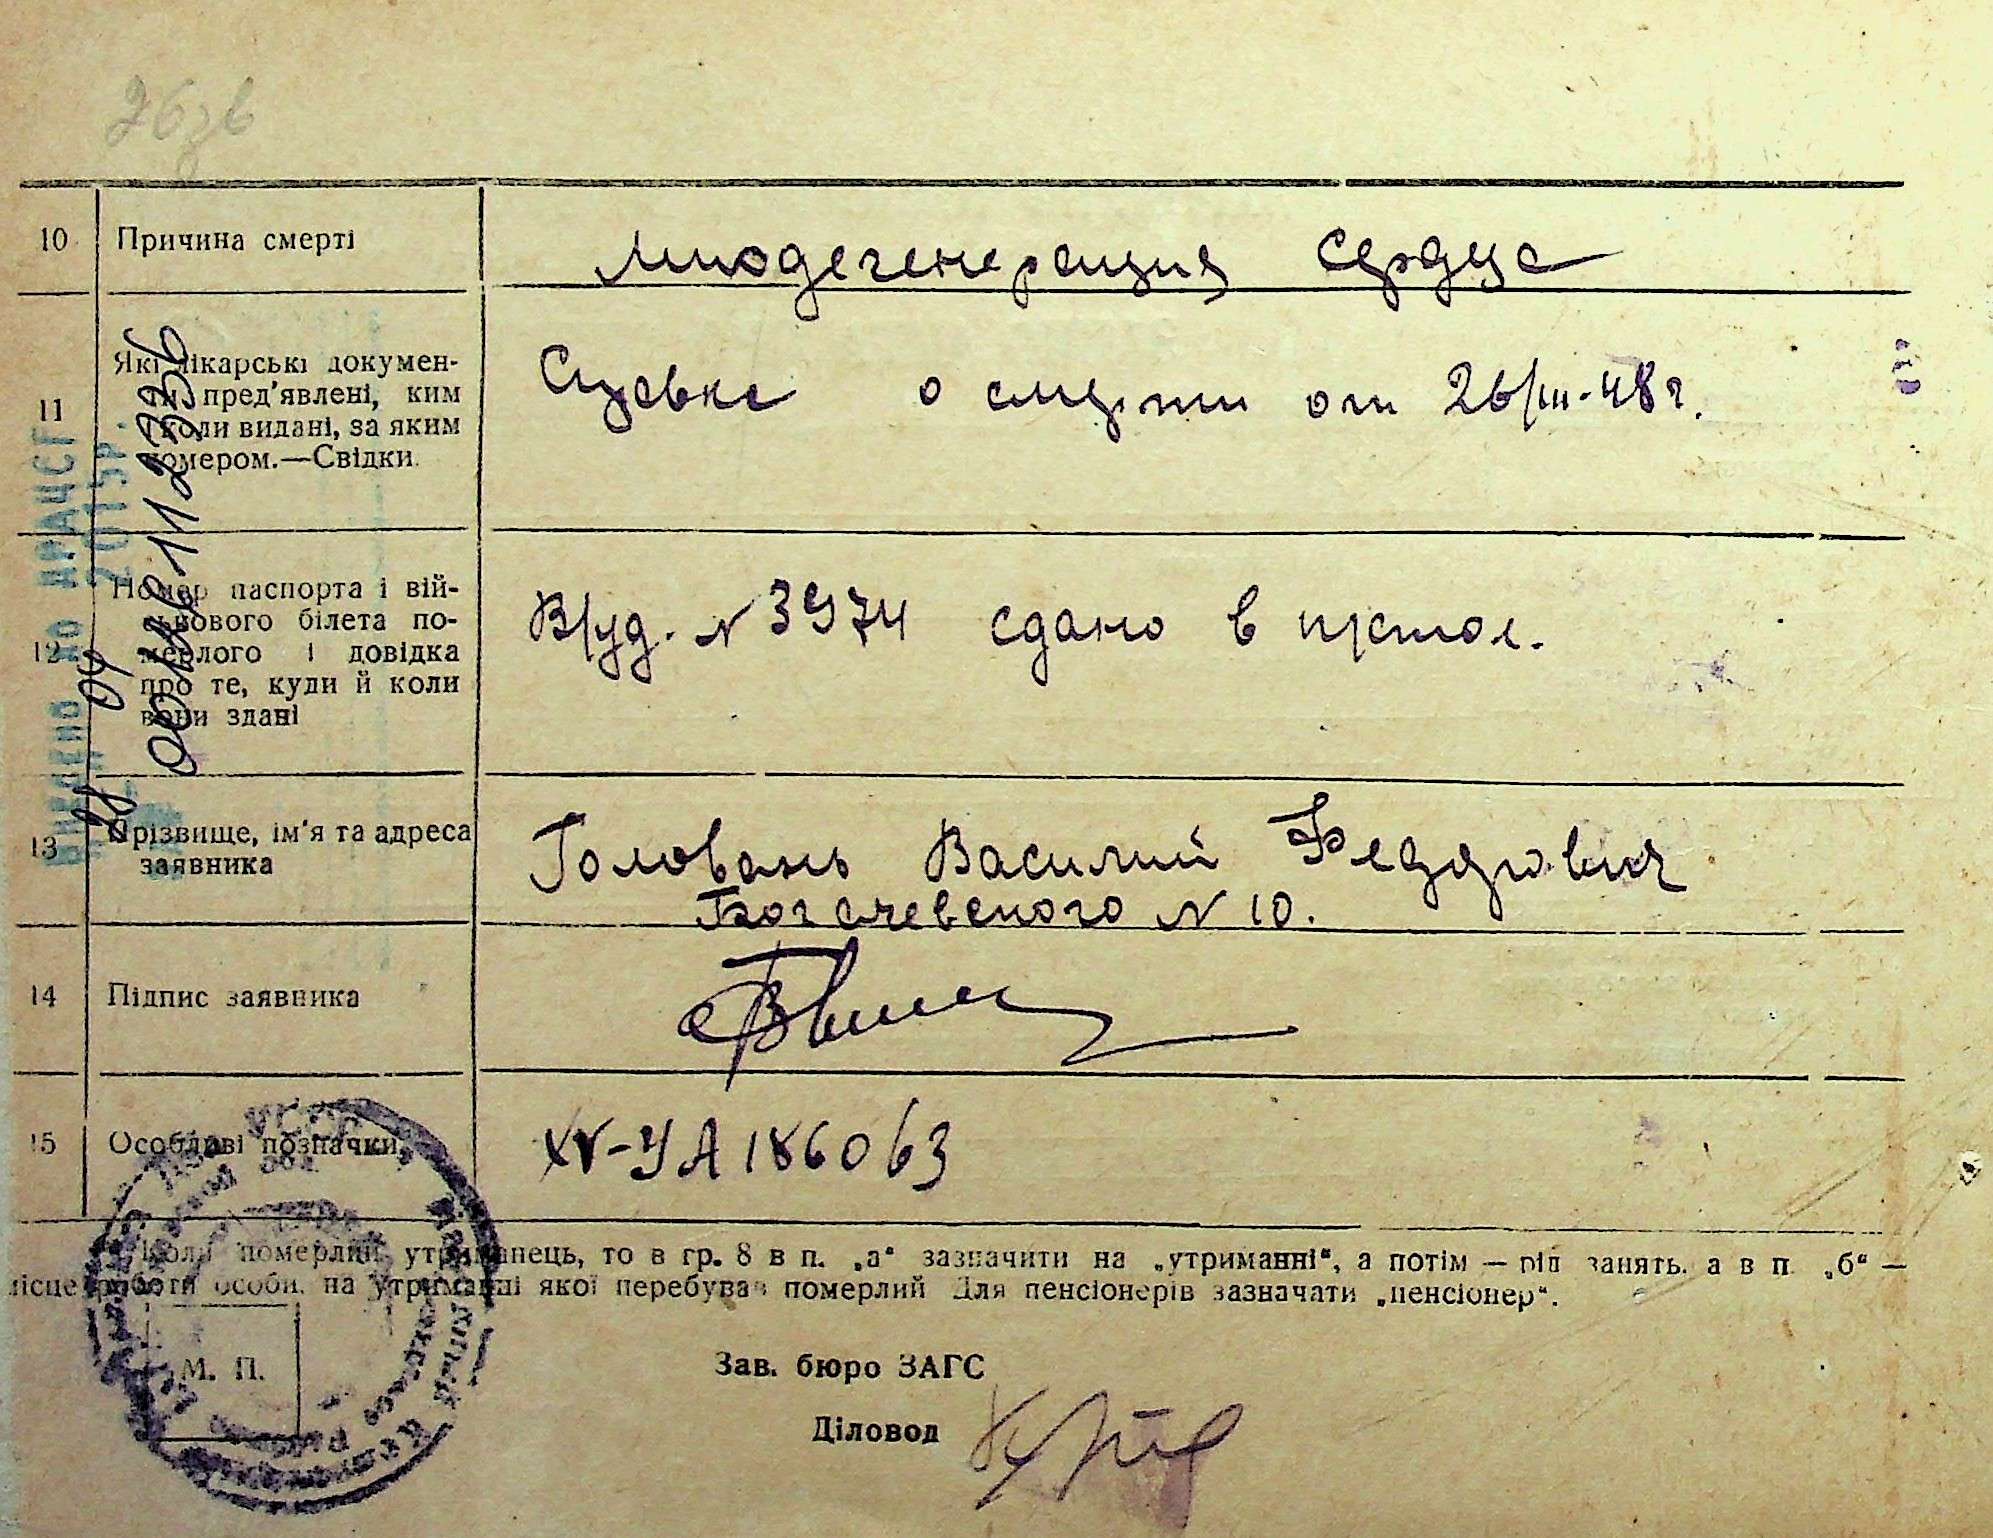 10 Причина смерті
Миодегенерация сердца
11 Які лікарські докумен-
ти пред'явлені, ким
і коли видані, за яким
номером.—Свідки.
Справка о смерти от 26/III-48 г.
12 Номер паспорта і вій-
ськового білета по-
мерлого і довідка
про те, куди й коли
вони здані
В/уд. N 3974 сдано в
13 Прізвище, ім'я та адреса
заявника
Головань Василий Федорович
Богачевского N 10.
14 Підпис заявника
15 Особливі позначки
XV-УА 186063
Коли померлий утриманець, то в гр. 8 в п. „а“ зазначити на „утриманні“, а потім — рід занять, а в п. „б“ —
місце роботи особи, на утриманні якої перебував померлий. Для пенсіонерів зазначати „пенсіонер“.
М. П.
Зав. бюро ЗАГС
Діловод
ВНЕСЕНО ДО ДРАЦСГ
11 04 2015р.
00 112336